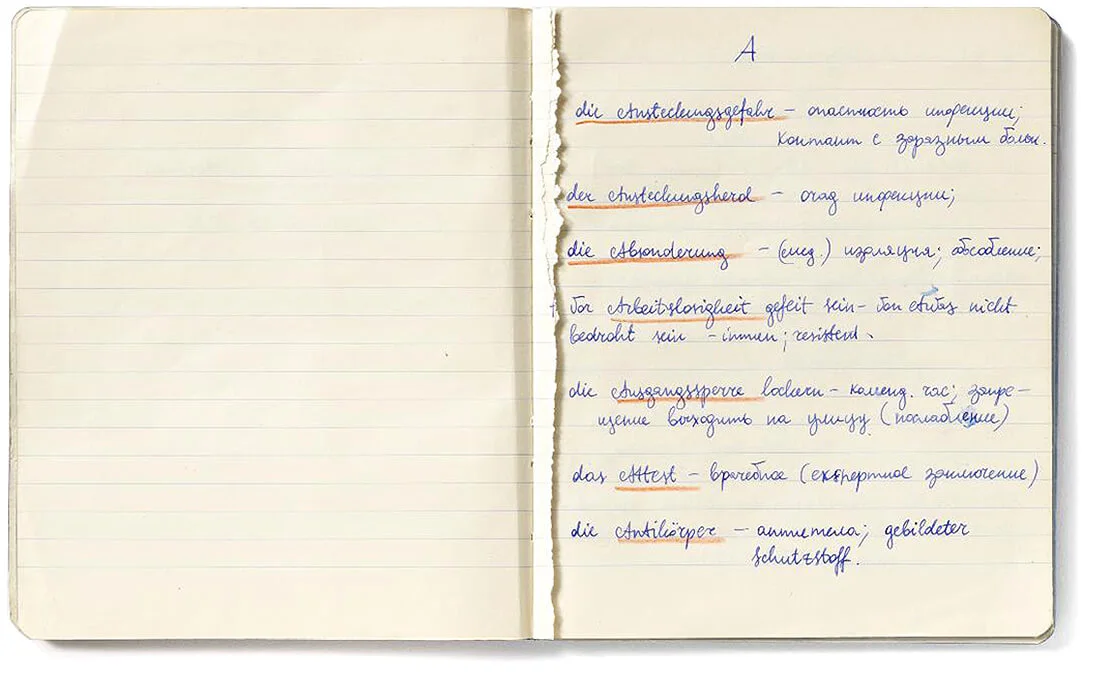 A
die Ansteckungsgefahr – опасность инфекции;
контакт с заразным больн.
der Ansteckungsherd – очаг инфекции;
die Absonderung – (мед.) изоляция; обособление;
Vor Arbeitslosigkeit gefeit sein – von etwas nicht
bedroht sein – immun; resistent.
die Ausgangssperre lockern – коменд. час; запре–
щение выходить на улицу (послабление)
das Attest – врачебное (експертное заключение)
die Antikörper – антитела; gebildeter
Schutzstoff.